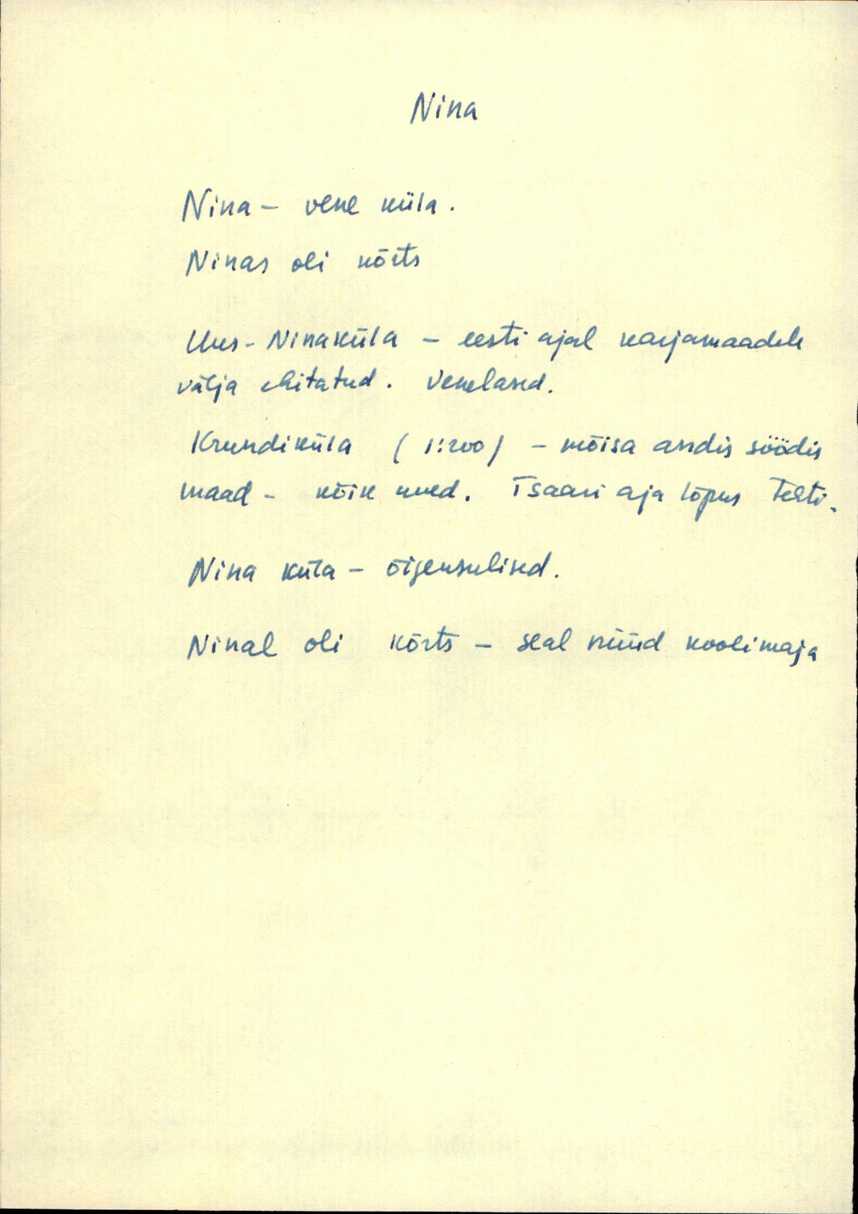 Nina
Nina – vene küla.
Ninas oli kõrts
Uus-Ninaküla – eesti ajal karjamaadele
välja ehitatud. Venelased.
Krundiküla (1:200) – mõisa andis söödis
maad – kõik uued. Tsaari aja lõpus tehti.
Nina küla – õigeusulised.
Ninal oli kõrts – seal nüüd koolimaja